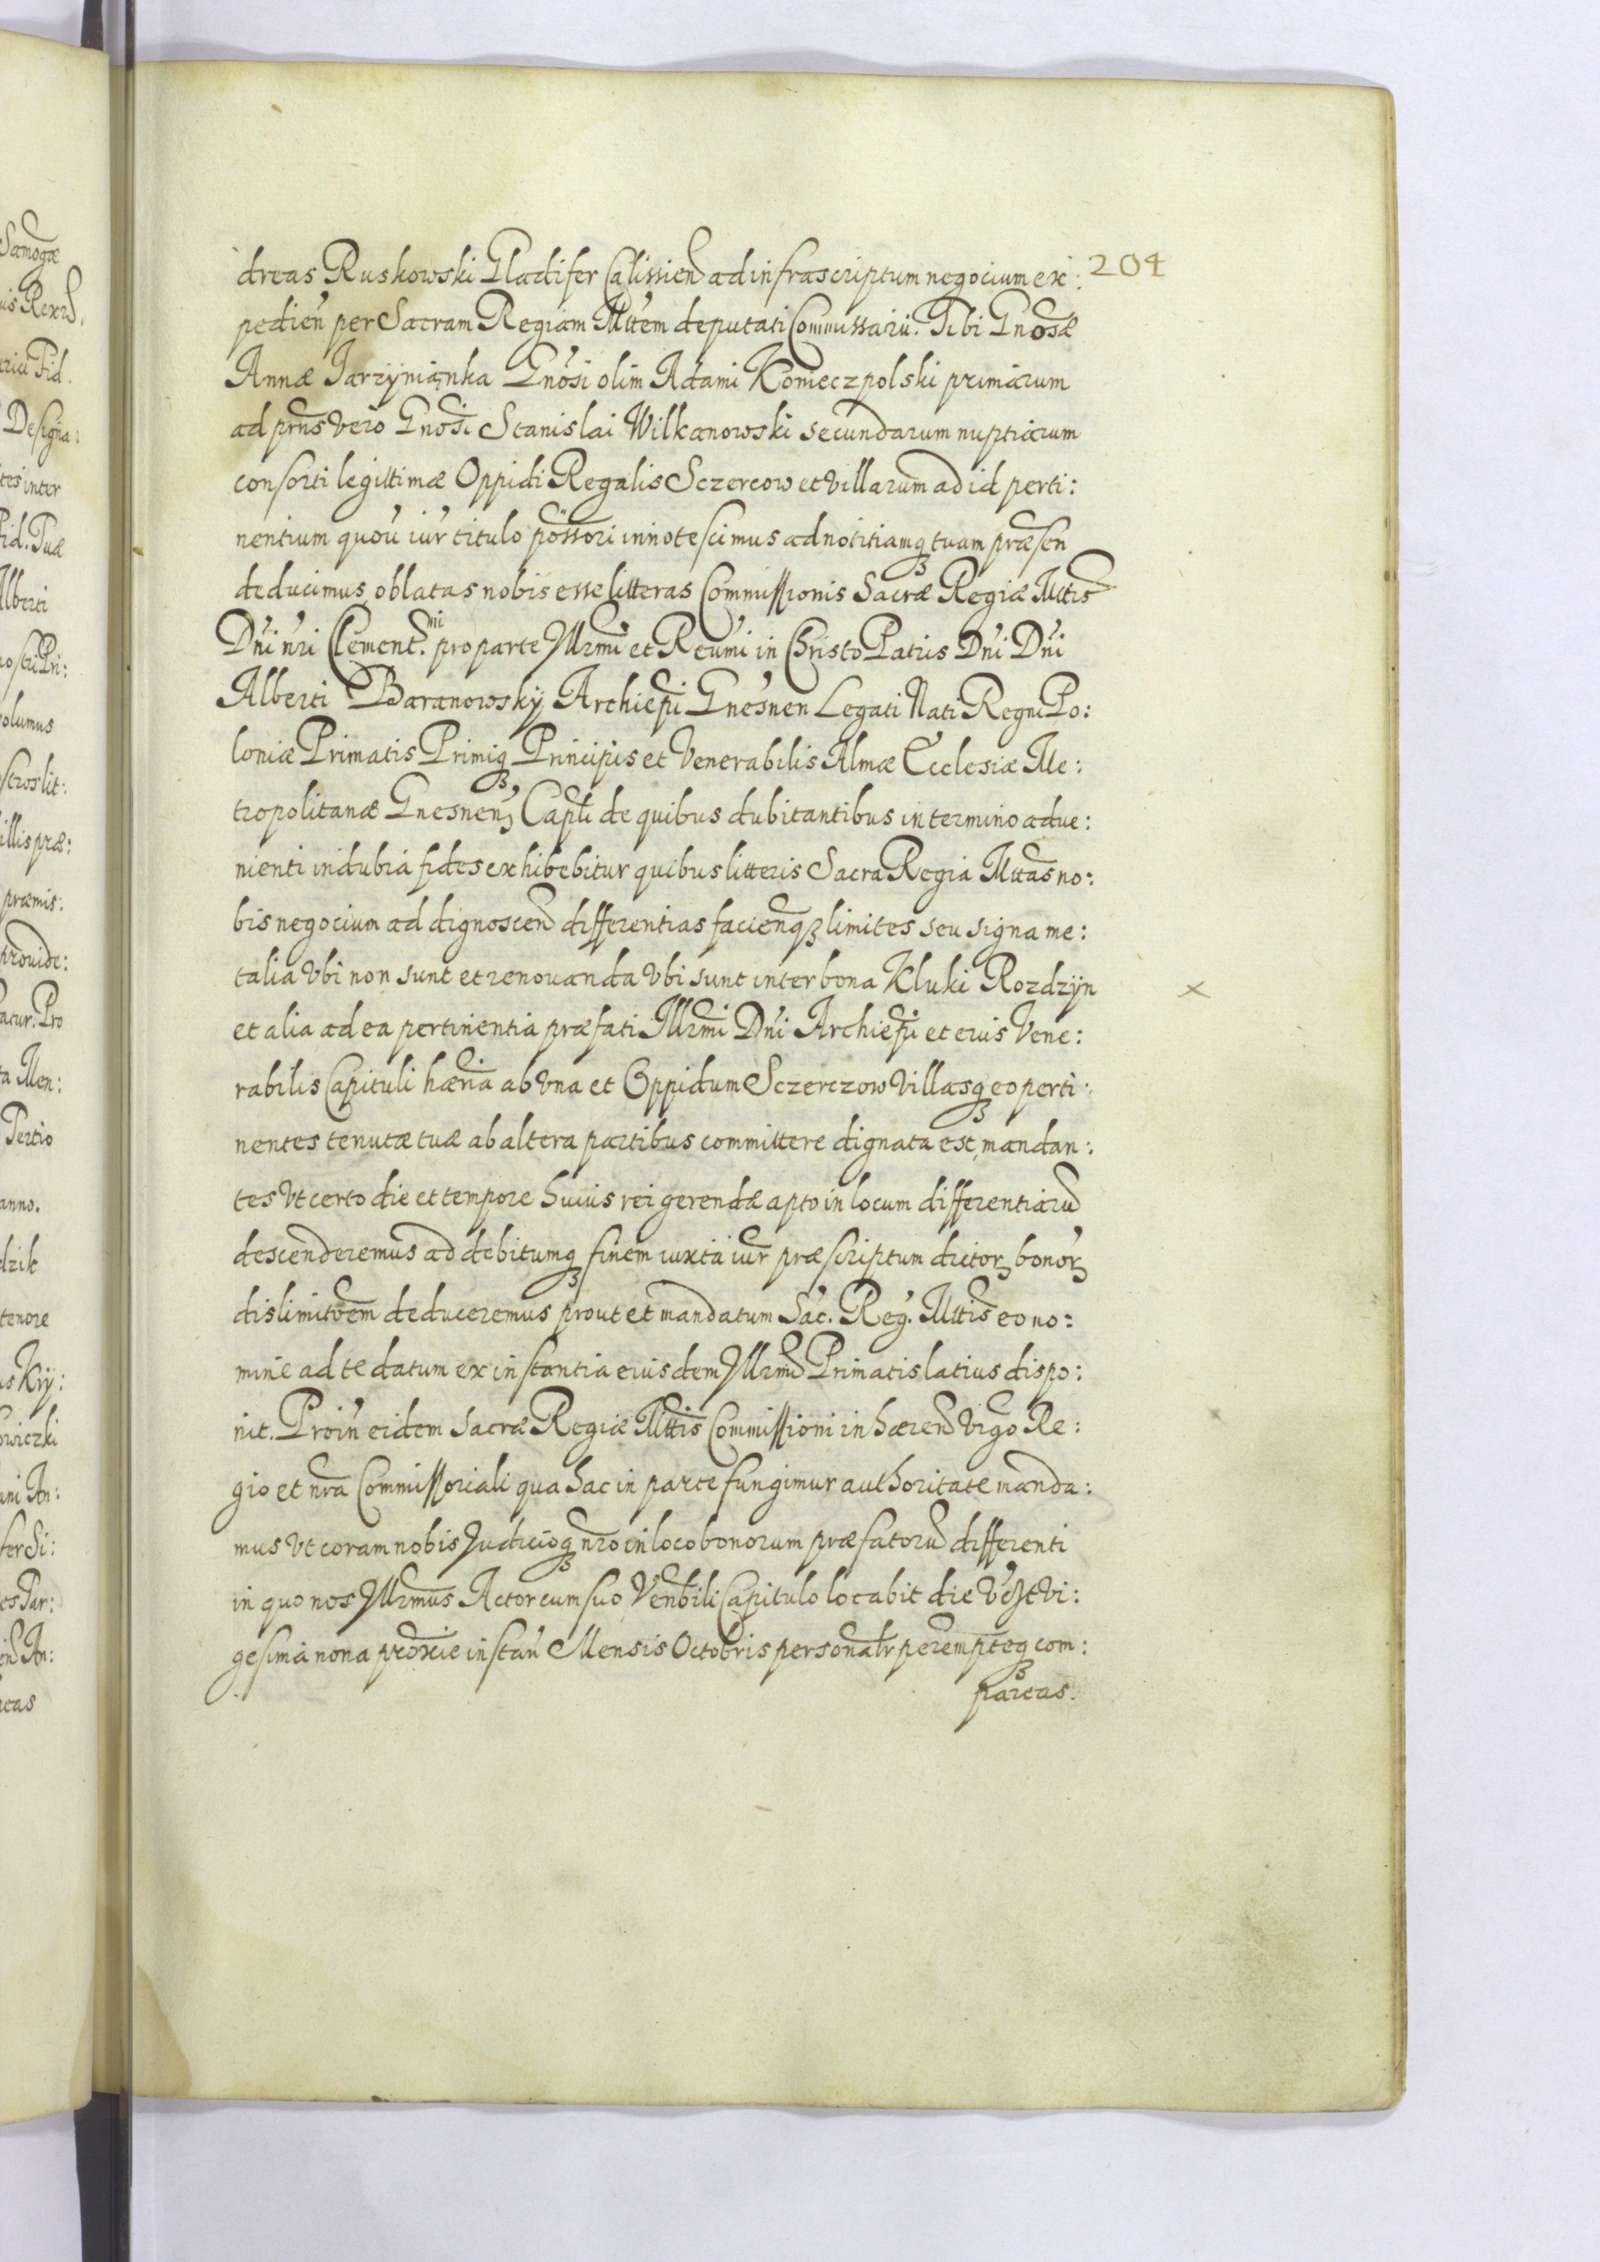 204
dreas Ruskowski Gladifer Calissien ad infrascriptum negocium ex:
pedien per Sacram Regiam Mttem deputati Commissarii. Tibi Gnosæ
Annæ Jarzynianka Gnosi olim Adami Konieczpolski primarum
ad prns vero Gnosi Stanislai Wilkanowski secundarum nuptiarum
consorti legittimæ Oppidi Regalis Sczercow et villarum ad id perti:
nentium quou iur titulo possori innotescimus ad notitiamq tuam præsen
deducimus oblatas nobis esse litteras Commissionis Sacræ Regiæ Mttis
Dni nri Clement.mi pro parte Illrmi et Reumi in Christo Patris Dni Dni
Alberti Baranowskÿ Archiepi Gnesnen Legati Nati Regni Po:
loniæ Primatis Primiq Principis et Venerabilis Almæ Ecclesiæ Me:
tropolitanæ Gnesnen Capli de quibus dubitantibus in termino adue:
nienti indubia fides exhibebitur quibus litteris Sacra Regia Mttas no:
bis negocium ad dignoscend differentias faciendq limites seu signa me:
talia Vbi non sunt et renouanda Vbi sunt inter bona Kluki Rozdzÿn
x
et alia ad ea pertinentia præfati Illrmi Dni Archiepi et eius Vene:
rabilis Capituli hæria ab Vna et Oppidum Sczerczow Villasq eo perti:
nentes tenutæ tuæ ab altera partibus committere dignata est, mandan:
tes Vt certo die et tempore huius rei gerendæ apto in locum differentiaru
descenderemus ad debitumq finem iuxta iur præscriptum dictor bonor
dislimitoem deduceremus prout et mandatum Sac. Reg. Mttis eo no:
mine ad te datum ex instantia eiusdem Illrmi Primatis latius dispo:
nit. Proin eidem Sacræ Regiæ Mttis Commissioni inhærend Vigo Re:
gio et nra Commissoriali qua hac in parte fungimur authoritate manda:
mus Vt coram nobis Judicioq nro in loco bonorum præfatoru differenti
in quo nos Illrmus Actor cum suo Venbili Capitulo locabit die Vigesima
gesima nona proxie instan Mensis Octobris personalr perempteq com:
pareas.